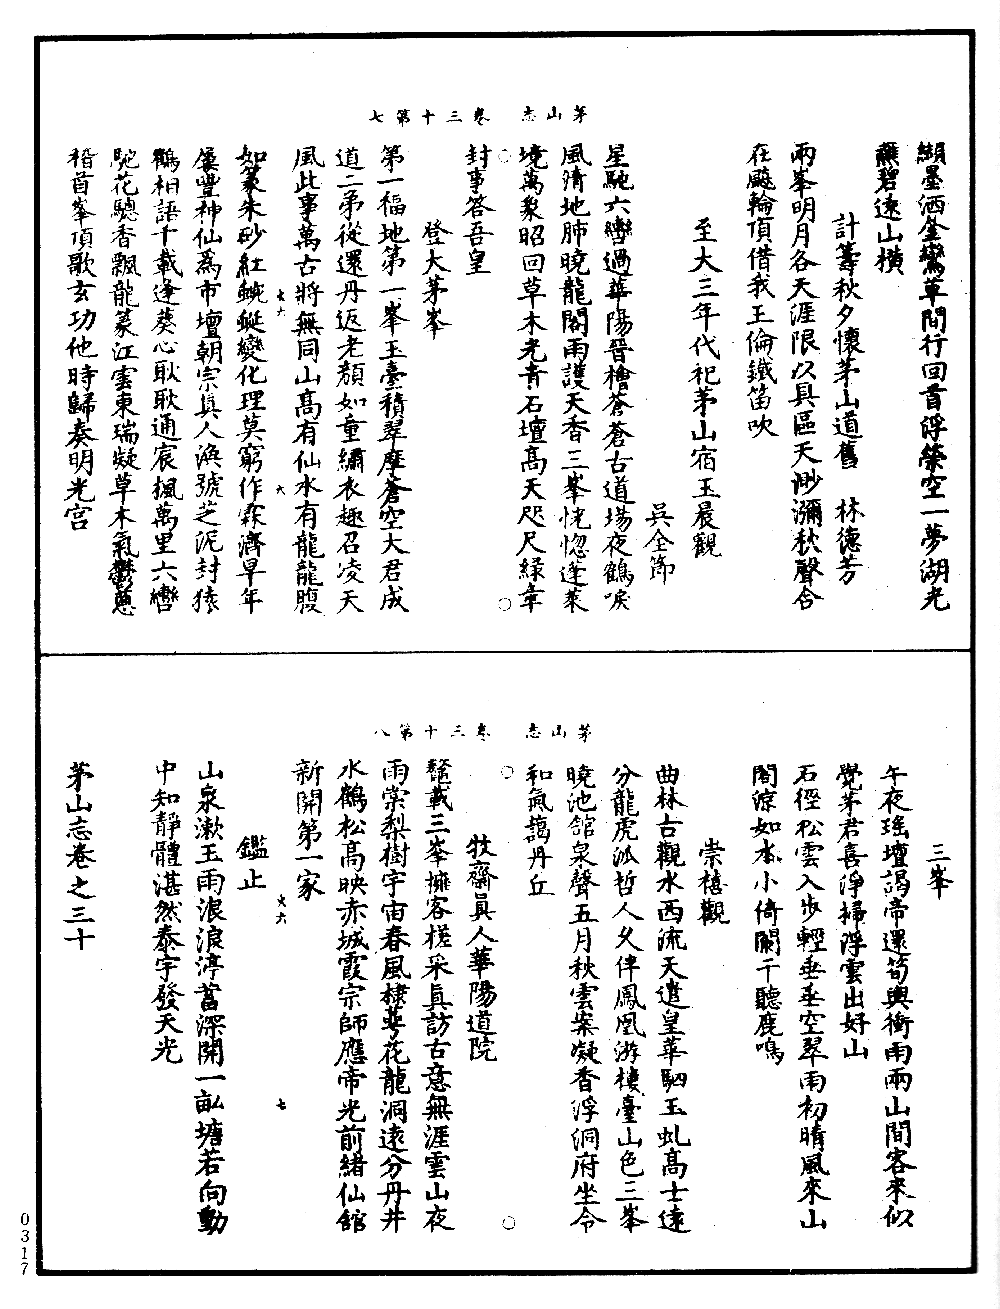 茅山志 卷三十第七
纈墨洒金鸞草間行回首浮榮空一夢湖光
蘸碧遠山橫
計籌秋夕懷茅山道舊 林德芳
兩峯明月各天涯限以具區天渺瀰秋聲合
在颷輪頂借我王倫鐵笛吹
至大三年代祀茅山宿玉晨觀
吳全節
星馳六轡過華陽晉檜蒼蒼古道場夜鶴唳
風清地肺曉龍閣雨護天香三峯恍惚蓬萊
境萬象昭回草木光青石壇高天咫尺綠章
封事答吾皇
登大茅峯
第一福地第一峯玉臺積翠摩蒼空大君成
道二弟從還丹返老顏如童繡衣趣召凌天
風此事萬古將無同山高有仙水有龍龍腹
如篆朱砂紅蜿蜒變化理莫窮作霖濟旱年
屢豐神仙爲市壇朝宗眞人渙號芝泥封猿
鶴相語千載逢葵心耿耿通宸楓萬里六轡
馳花驄香飄龍篆江雲東瑞凝草木氣鬱葱
稽首峯頂歌玄功他時歸奏明光宮
七六 六
茅山志 卷三十第八
三峯
午夜瑤壇謁帝還筍輿衝雨兩山間客來似
覺茅君喜淨掃浮雲出好山
石徑松雲入步輕垂垂空翠雨初晴風來山
閣涼如水小倚闌干聽鹿鳴
崇禧觀
曲林古觀水西流天遣皇華駟玉虬高士遠
分龍虎派哲人久伴鳳凰游樓臺山色三峯
曉池館泉聲五月秋雲案凝香浮洞府坐令
和氣藹丹丘
牧齋眞人華陽道院
鼇載三峯擁客槎采眞訪古意無涯雲山夜
雨棠梨樹宇宙春風棣萼花龍洞遠分丹井
水鶴松高映赤城霞宗師應帝光前緒仙館
新開第一家
鑑止
山泉漱玉雨浪浪渟蓄深開一畝塘若向動
中知靜體湛然泰宇發天光
茅山志卷之三十
火六 七
0317